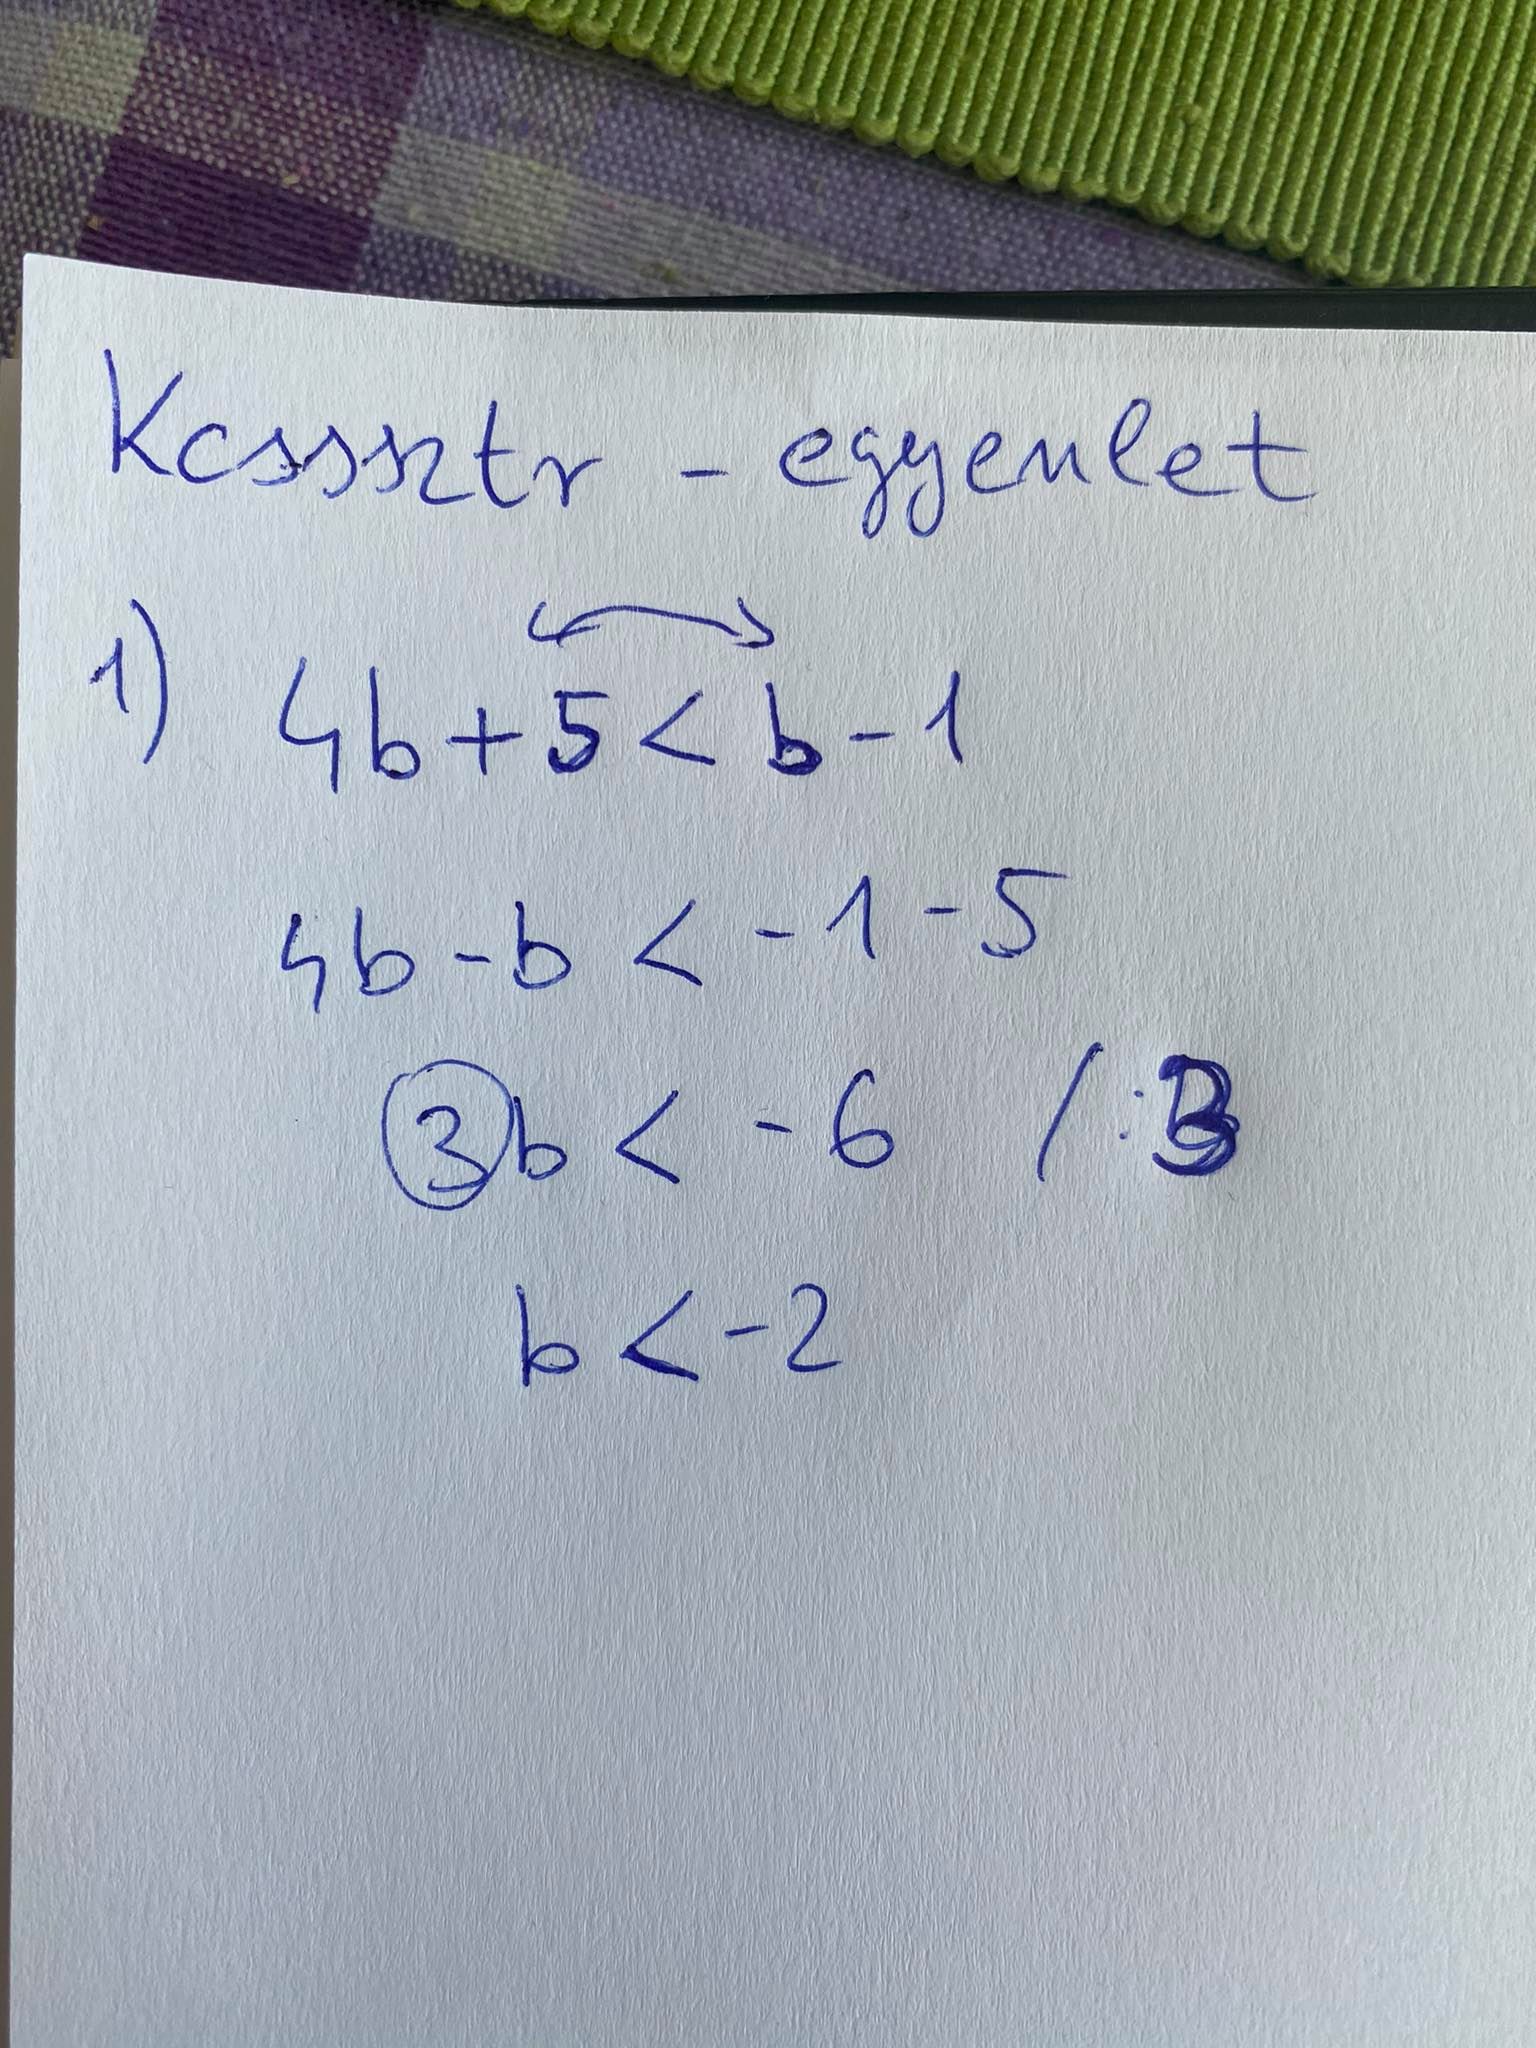 Kcsssztr - egyenlet
1) 4b + 5 < b - 1
4b - b < - 1 - 5
3b < - 6 / : 3
b < - 2